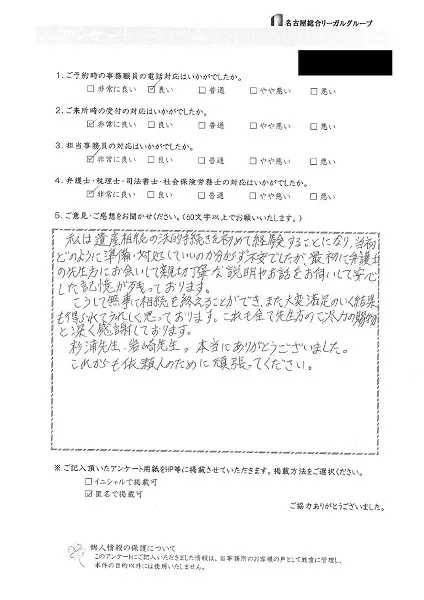 名古屋総合リーガルグループ
アンケート
1. ご予約時の事務職員の電話対応はいかがでしたか。
□非常に良い ☑良い □普通 □やや悪い □悪い
2. ご来所時の受付の対応はいかがでしたか。
☑非常に良い □良い □普通 □やや悪い □悪い
3. 担当事務員の対応はいかがでしたか。
☑非常に良い □良い □普通 □やや悪い □悪い
4. 弁護士・税理士・司法書士・社会保険労務士の対応はいかがでしたか。
☑非常に良い □良い □普通 □やや悪い □悪い
5. ご意見・ご感想をお聞かせください。(60文字以上でお願いいたします。)
私は遺産相続の法的手続きを初めて経験することになり、当初
どのように準備・対処していいのか分からず不安でしたが、最初に弁護士
の先生方にお会いして親切丁寧な説明やお話をお伺いして安心
した記憶が残っております。
こうして無事に相続を終えることができ、また大変満足のいく結果
も得られてうれしく思っております。これも全て先生方のご尽力の賜物
と深く感謝しております。
杉浦先生、岩崎先生、本当にありがとうございました。
これからも依頼人のために頑張ってください。
※ ご記入頂いたアンケート用紙をHP等に掲載させていただきます。掲載方法をご選択ください。
□イニシャルで掲載可
☑匿名で掲載可
ご協力ありがとうございました。
個人情報の保護について
このアンケートにご記入いただきました情報は、当事務所のお客様の声として厳重に管理し、
本件の目的以外には使用いたしません。